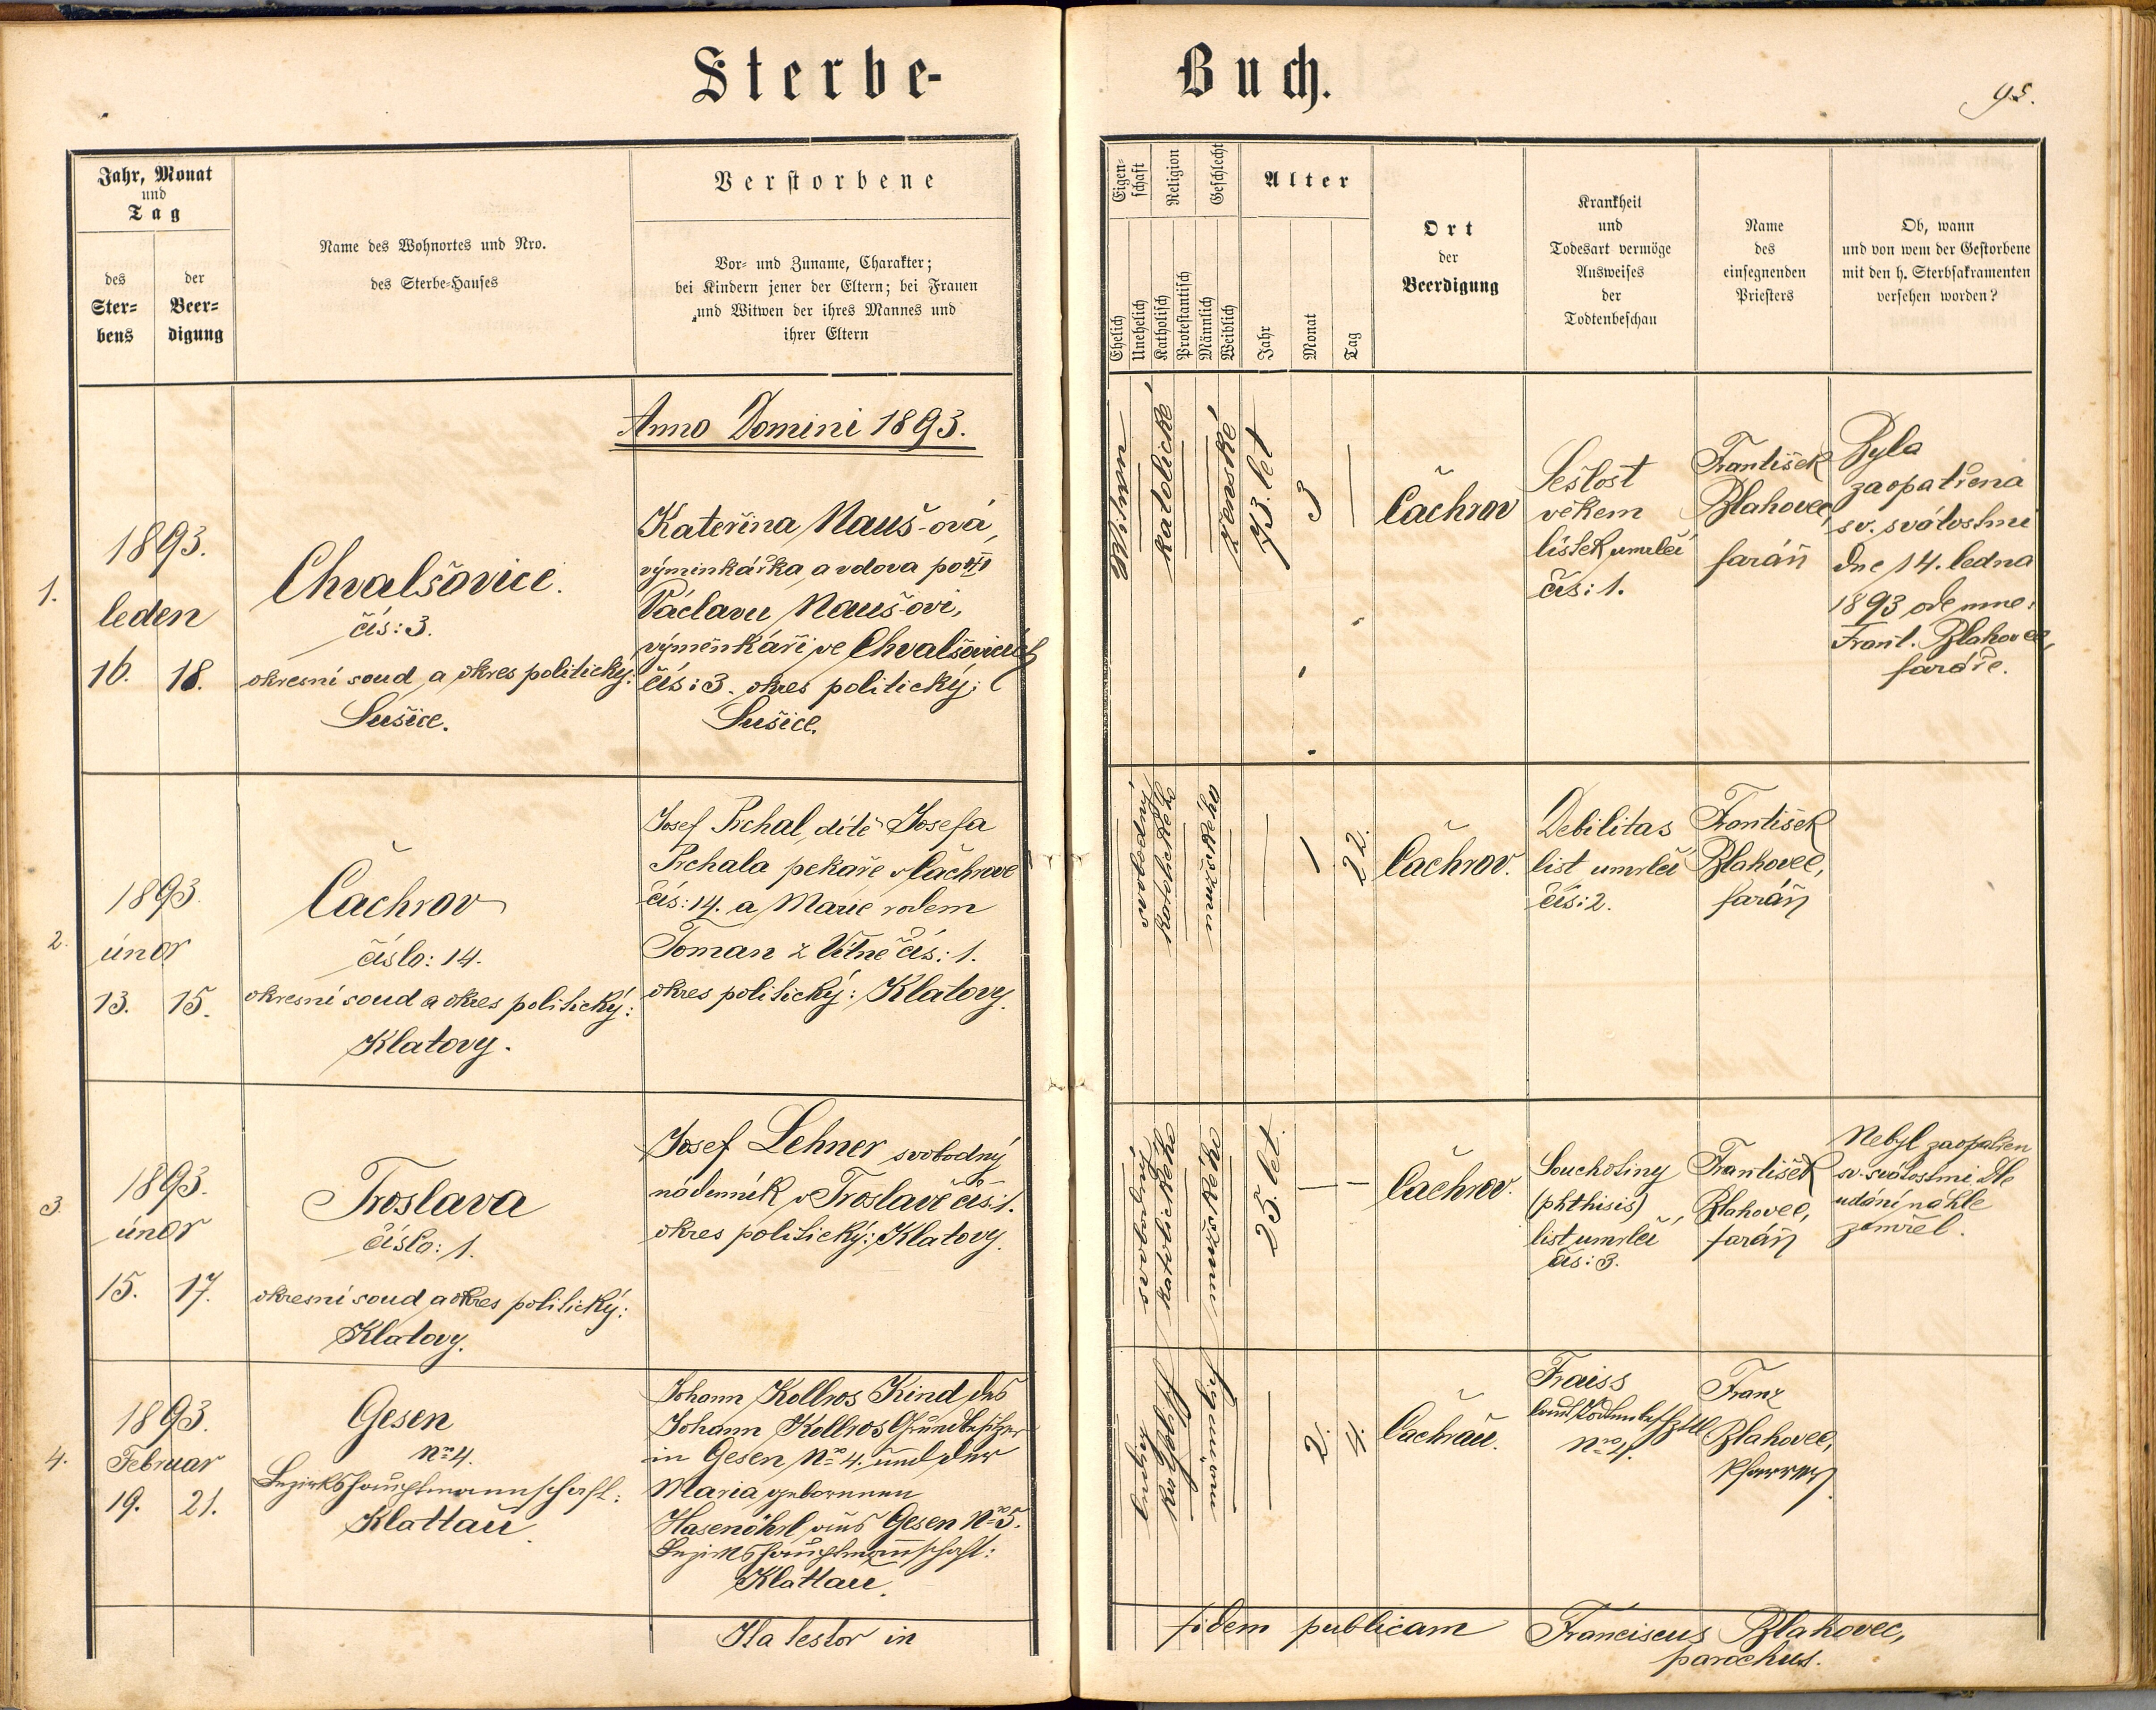 Sterbe-
Buch.
95.
Jahr, Monat
und
Tag
des
Ster-
bens
der
Beer-
digung
Name des Wohnortes und Nro.
des Sterbe-Hauses
Verstorbene
Vor- und Zuname, Charakter;
bei Kindern jener der Eltern; bei Frauen
und Witwen der ihres Mannes und
ihrer Eltern
Eigen-
schaft
Religion
Geschlecht
Ehelich
Unehelich
Katholisch
Protestantisch
Männlich
Weiblich
Alter
Jahr
Monat
Tag
Ort
der
Beerdigung
Krankheit
und
Todesart vermöge
Ausweises
der
Todtenbeschau
Name
des
einsegnenden
Priesters
Ob, wann
und von wem der Gestorbene
mit den h. Sterbsakramenten
versehen worden?
Anno Domini 1893.
1.
1893.
leden
16. 18.
Chvalšovice.
čís: 3.
okresní soud a okres politický:
Sušice.
Kateřina Nauš-ová,
výminkářka a vdova po
Václavu Nauš-ovi,
výměnkáři ve Chvalšovicích
čís: 3. okres politický:
Sušice.
katolické
ženské
73. let
3
Čachrov
Sešlost
věkem
lístek umrlčí
čís: 1.
František
Blahovec,
farář
Byla
zaopatřena
sv. svátostmi
dne 14. ledna
1893 ode mne:
Frant. Blahovec,
faráře.
2.
1893.
únor
13. 15.
Čachrov
číslo: 14.
okresní soud a okres politický:
Klatovy.
Josef Prchal, dítě Josefa
Prchala pekaře v Čachrově
čís: 14. a Marie rodem
Toman z čís: 1.
okres politický: Klatovy.
svobodný
katolického
mužského
1
22.
Čachrov.
Debilitas
list umrlčí
čís: 2.
František
Blahovec,
farář
3.
1893.
únor
15. 17.
Troslava
číslo: 1.
okresní soud a okres politický:
Klatovy.
Josef Lehner svobodný
nádenník v Troslavě čís: 1.
okres politický: Klatovy.
svobodný
katolického
mužského
25. let.
Čachrov.
Souchotiny
(phthisis)
list umrlčí
čís: 3.
František
Blahovec,
farář
Nebyl zaopatřen
sv. svátostmi. Dle
udání náhle
zemřel.
4.
1893.
Februar
19. 21.
Gesen
No 4.
Bezirkshauptmannschaft:
Klattau.
Johann Kollros Kind des
Johann Kollros Grundbesitzer
in Gesen No 4. und der
Maria geborenen
Hasenöhrl aus Gesen No 5.
Bezirkshauptmannschaft:
Klattau.
ledig
katholisch
männlich
2.
4.
Čachrau.
Fraiss
laut
Nro 4.
Franz
Blahovec,
Pfarrer
Ita testor in fidem publicam Franciscus Blahovec,
parochus.